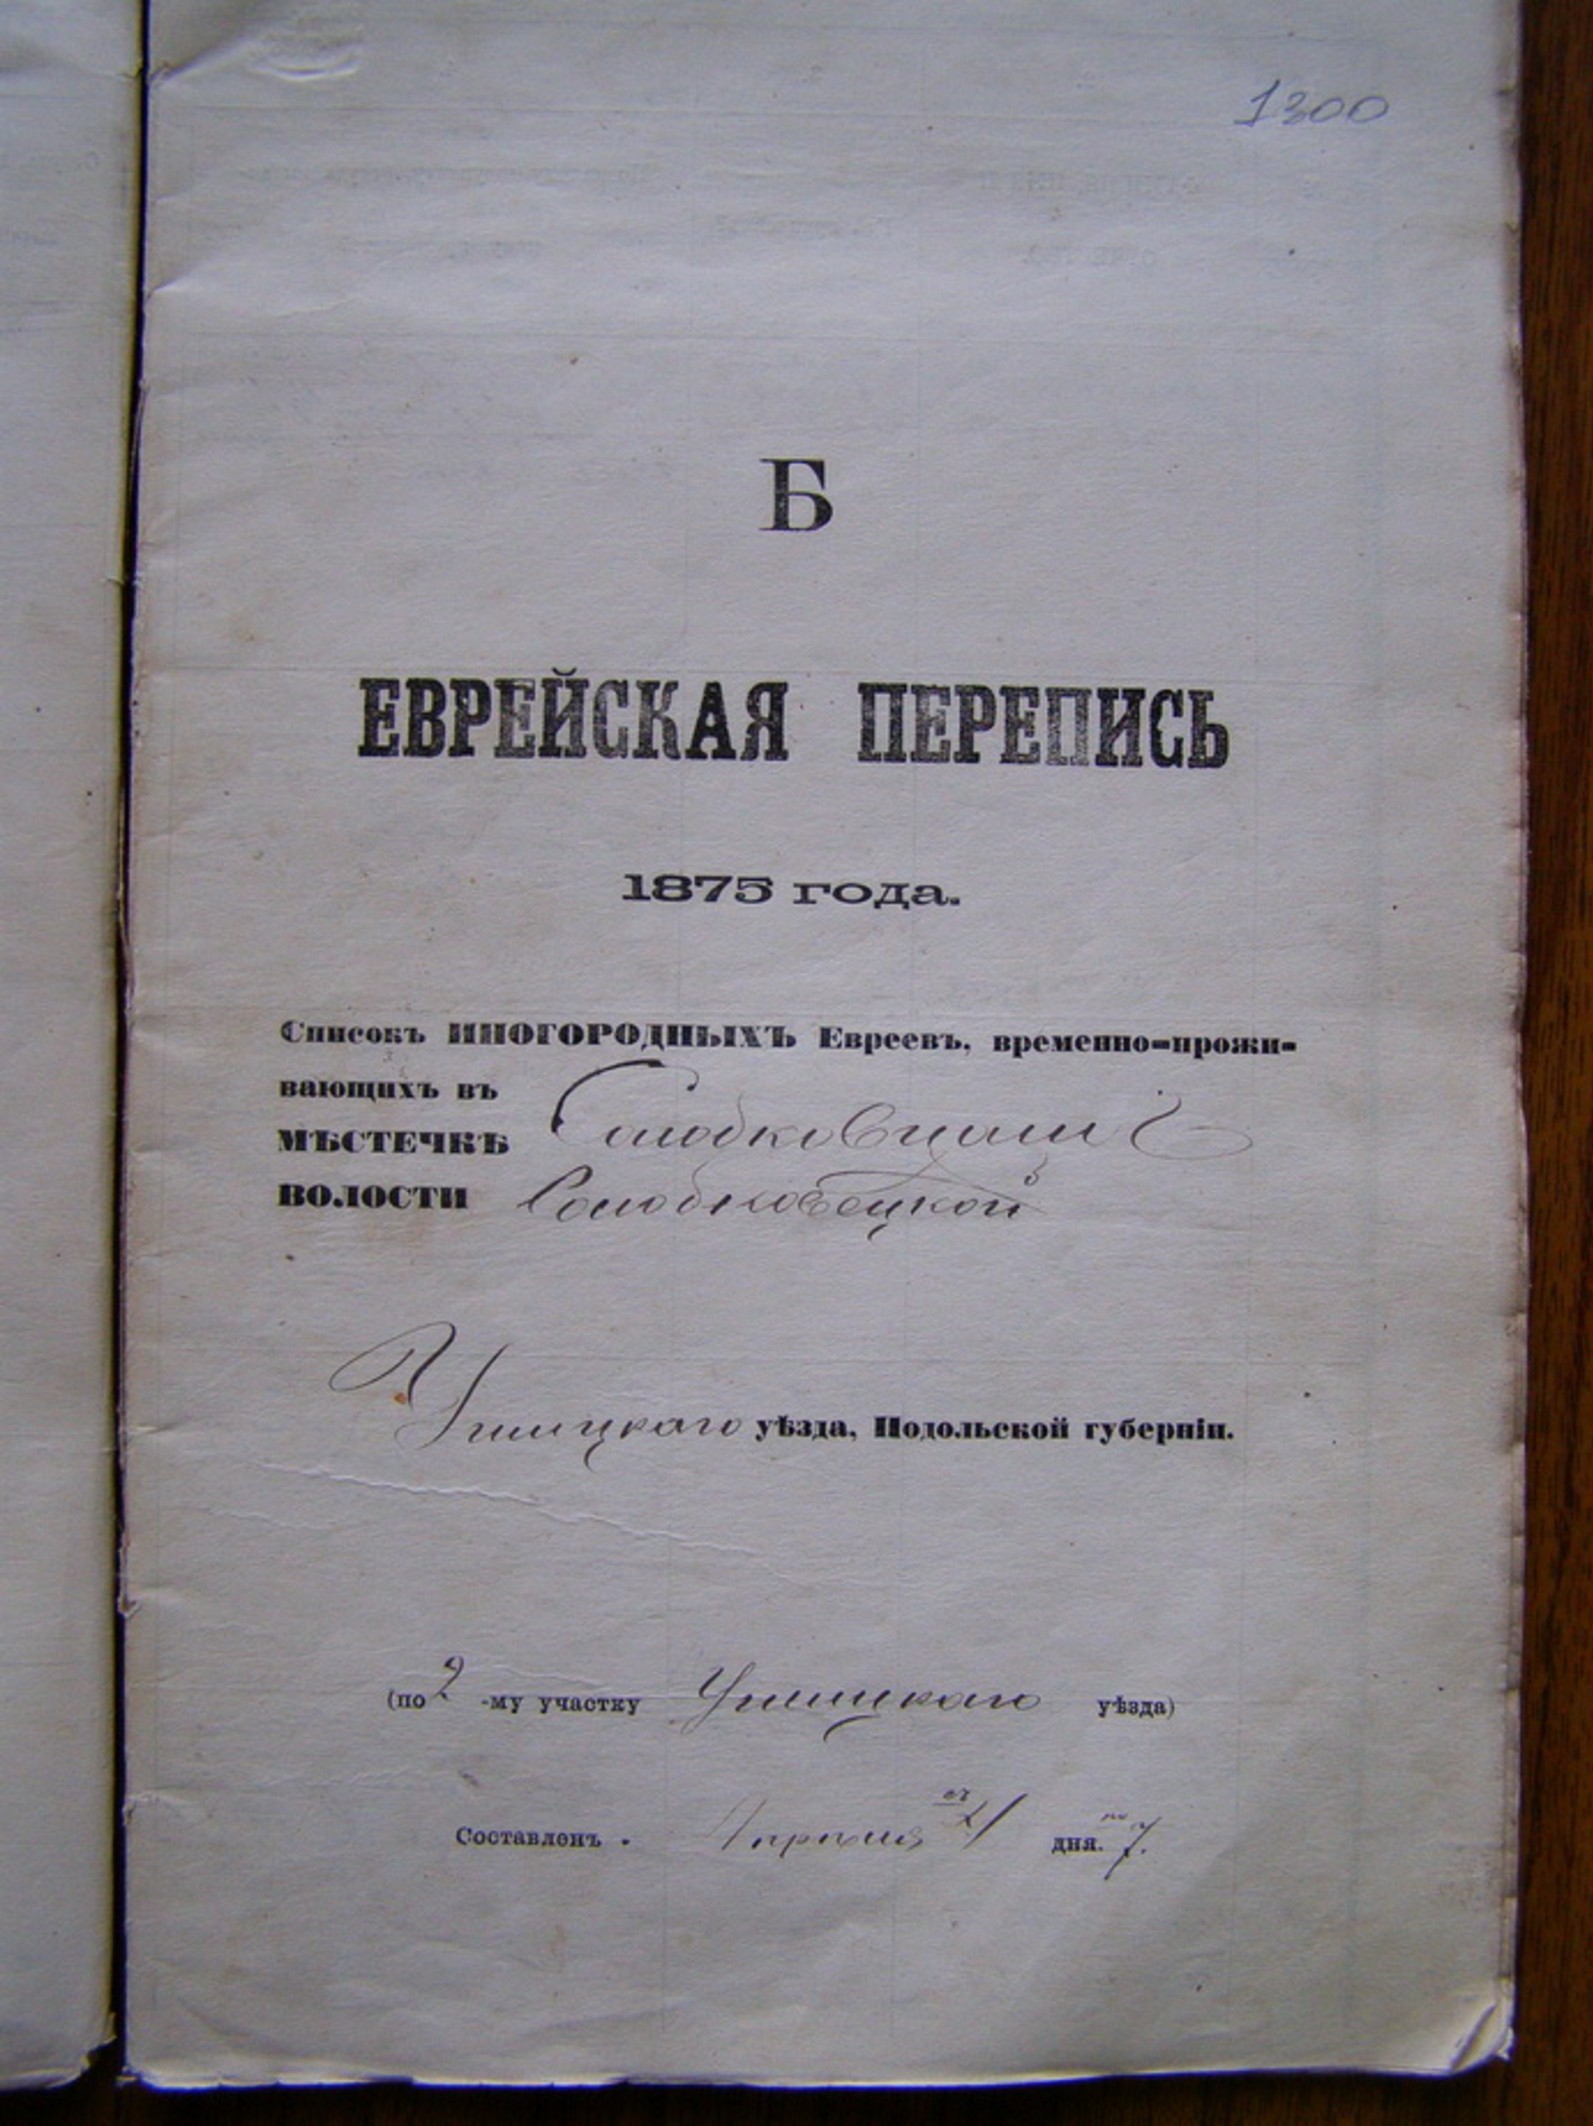 1300
Б
ЕВРЕЙСКАЯ ПЕРЕПИСЬ
1875 года.
Списокъ ИНОГОРОДНЫХЪ Евреевъ, временно-прожи-
вающихъ въ
МѢСТЕЧКѢ Солобковцахъ
ВОЛОСТИ Солобковецкой
Ушицкаго уѣзда, Подольской губерніи.
(по 2 -му участку Ушицкаго уѣзда)
Составленъ . Апрѣля дня. по 7.